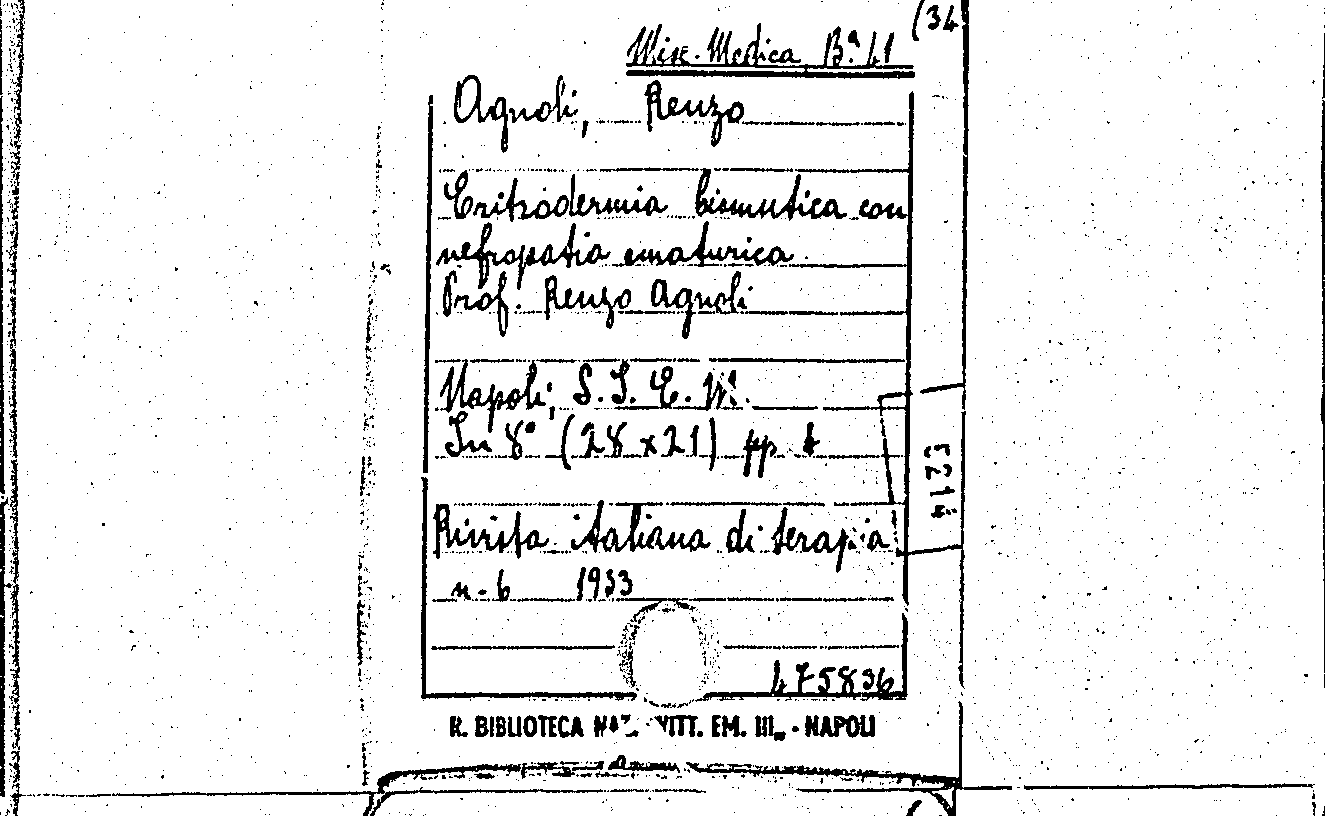 (34
Misc. Medica B.ª 41
Agnoli, Renzo
Eritrodermia bismutica con
nefropatia ematurica.
Prof. Renzo Agnoli
Napoli; S. I. E. M.
In 8° (28 x 21) pp. 4
Rivista italiana di terapia
n. 6 1933
475836
R. BIBLIOTECA NAZ. VITT. EM. III„ - NAPOLI